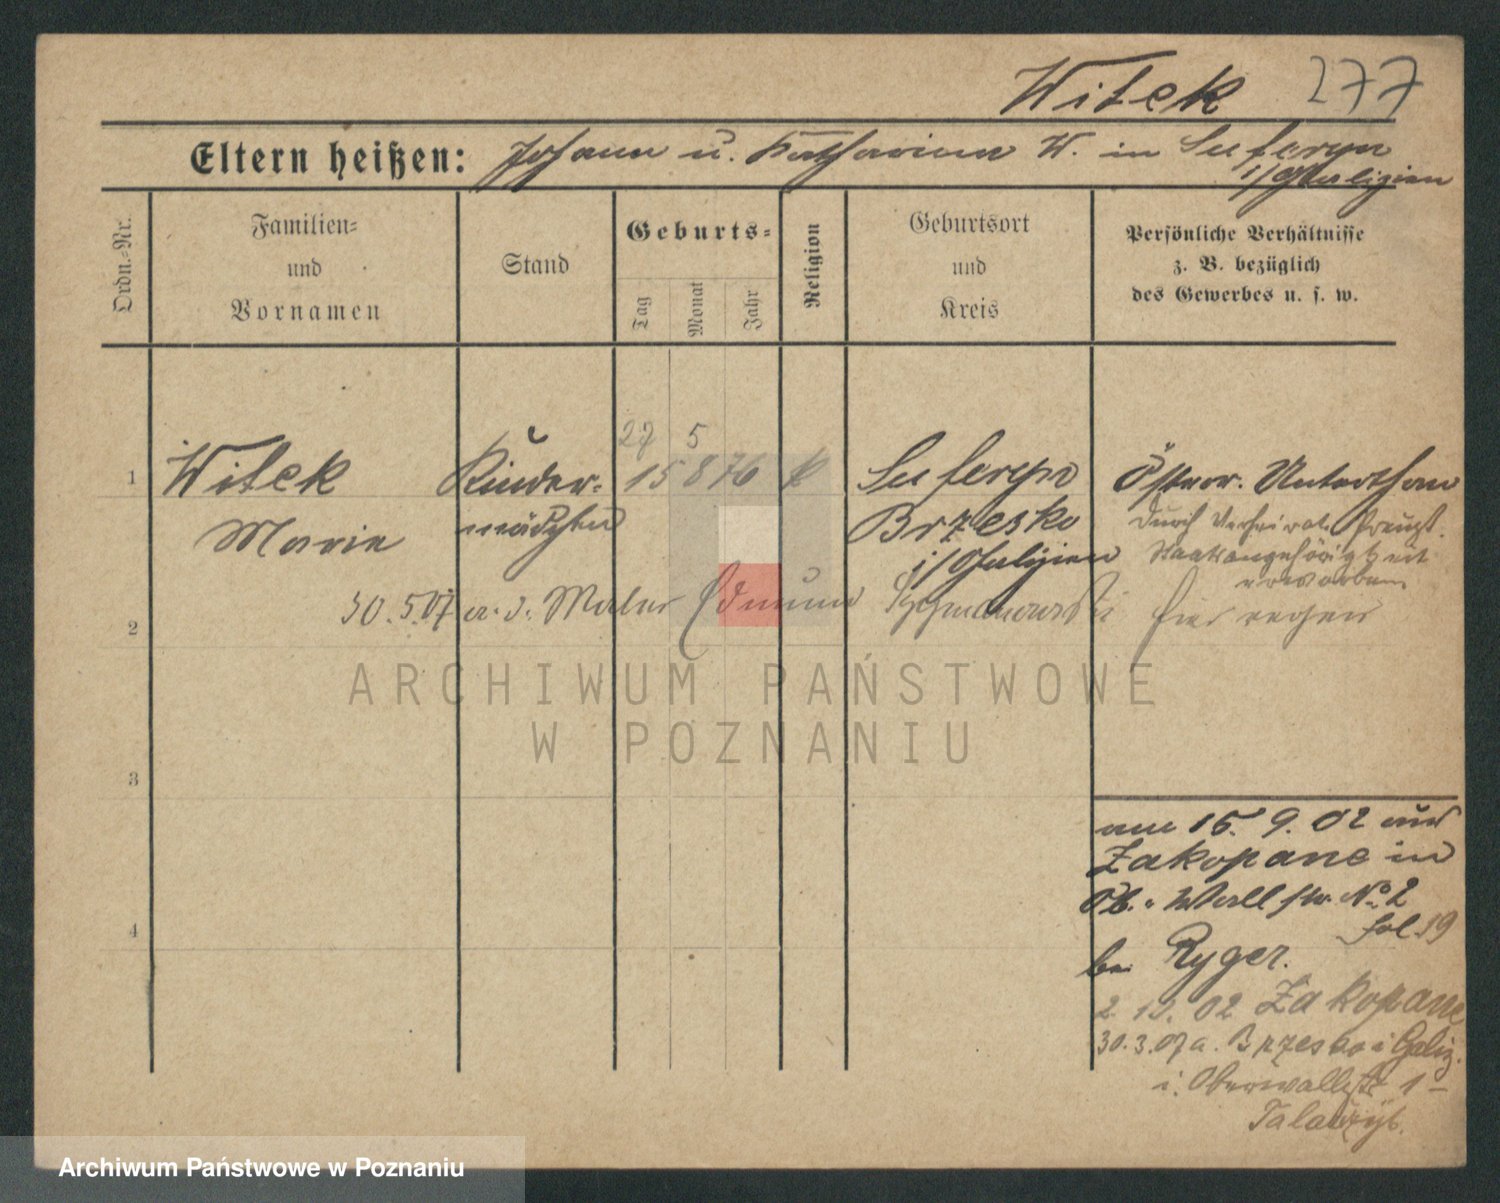 Witek 277
Eltern heißen: Johann u. Katharina W. in Suferyn
i/Galizien
Ordn.-Nr.
Familien-
und
Vornamen
Stand
Geburts-
Tag
Monat
Jahr
Religion
Geburtsort
und
Kreis
Persönliche Verhältnisse
z. B. bezüglich
des Gewerbes u. s. w.
27 5
1 Witek Kinder- 15 8 76 k Suferyn Österr. Unterthan
Marie mädchen Brzesko durch Verheirat. Preuß.
i/Galizien Staatsangehörigkeit
erworben
2 30.5.07 a. d. Maler Edmund Szymanowski hier
ARCHIWUM PAŃSTWOWE
W POZNANIU
3
am 15. 9. 02 aus
Zakopane in
Ob. Wallstr. No 2
fol. 19
bei Ryger.
4
2. 02 Zakopane
30.3.07 a. Brzesko i Galiz.
i. Oberwallstr 1
Archiwum Państwowe w Poznaniu